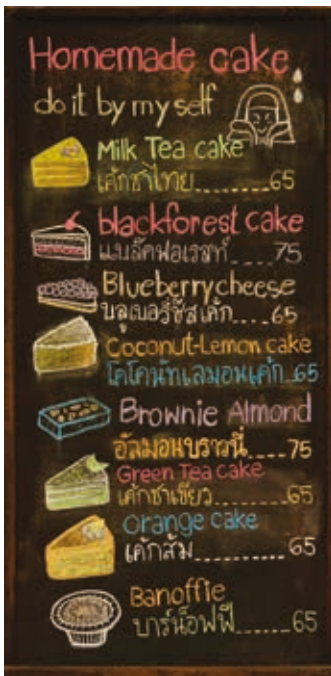 Homemade cake
do it by my self
Milk Tea cake
เค้กชาไทย........65
blackforest cake
แบล๊คฟอเรสท์....75
Blueberrycheese
บลูเบอรี่ชีสเค้ก....65
Coconut-Lemon cake
โคโคนัทเลมอนเค้ก..65
Brownie Almond
อัลมอนบราวนี่....75
Green Tea cake
เค้กชาเขียว........65
Orange cake
เค้กส้ม..........65
Banoffie
บาร์น๊อฟฟี่......65